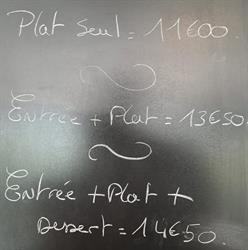 Plat Seul = 11€00.
Entrée + Plat = 13€50
Entrée + Plat +
Dessert = 14€50.